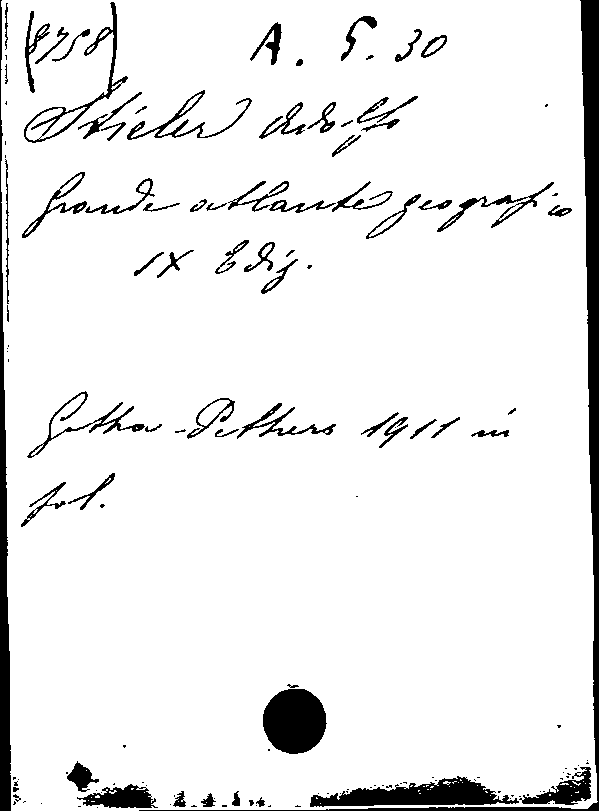 (8758) A. 5. 30
Stieler Adolfo
Grande atlante geografico
IX Ediz.
Gotha - Pethers 1911 in
fol.